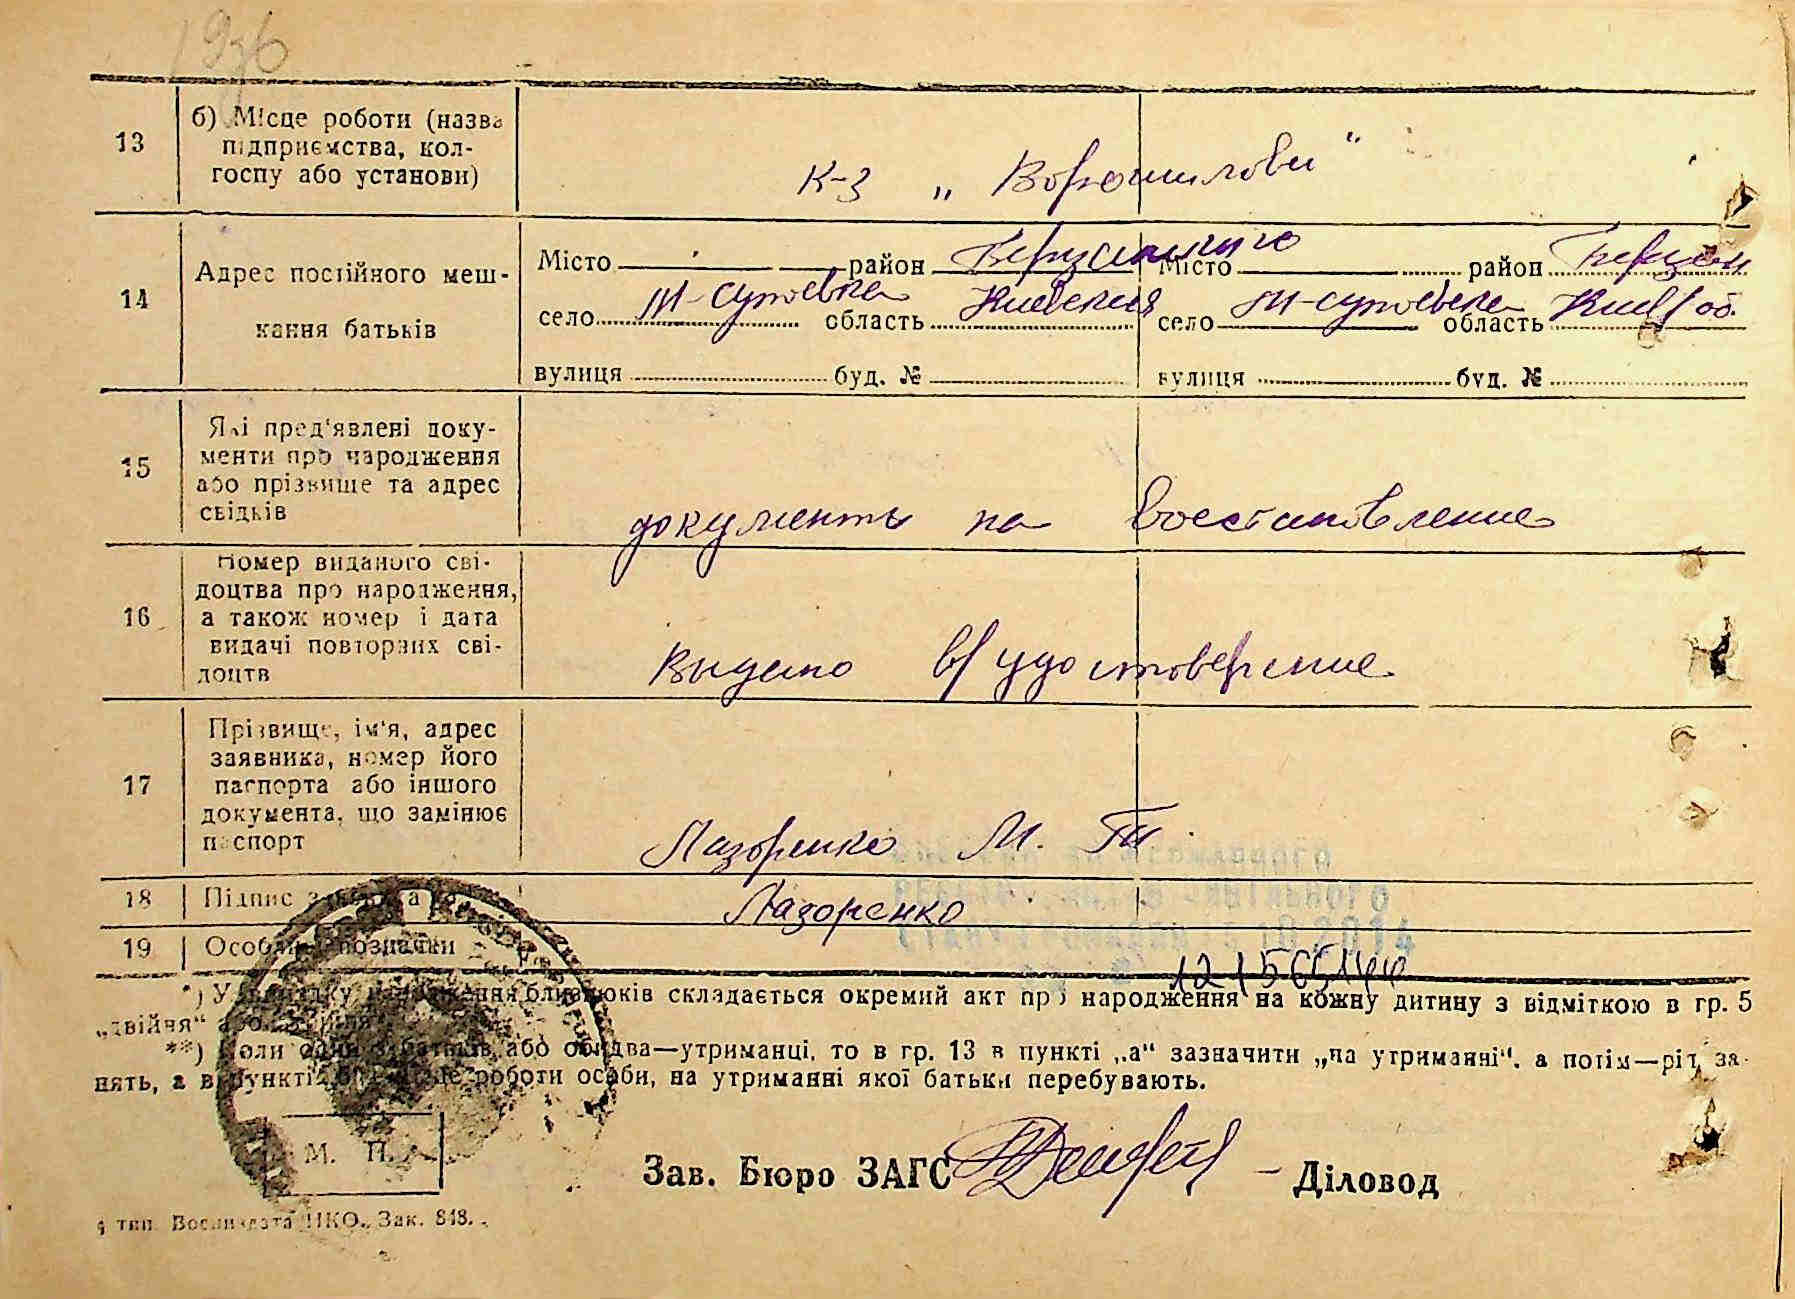 1936
13
б) Місце роботи (назва
підприємства, кол-
госпу або установи)
К-з „Ворошилова“
14
Адрес постійного меш-
кання батьків
Місто район Місто район
село область Киевская село область Киев/об.
вулиця буд. № вулиця буд. №
15
Які пред'явлені доку-
менти про народження
або прізвище та адрес
свідків
документы на восстановление
16
Номер виданого сві-
доцтва про народження,
а також номер і дата
видачі повторних сві-
доцтв
Выдано вр/удостоверение
17
Прізвище, ім'я, адрес
заявника, номер його
паспорта або іншого
документа, що замінює
паспорт
Лазоренко М. Т.
18
Підпис
Лазоренко
19
Особливі позначки
*) У випадку народження близнюків складається окремий акт про народження на кожну дитину з відміткою в гр. 5
„двійня“ або
**) Коли один з батьків або обидва—утриманці, то в гр. 13 в пункті „а“ зазначити „на утриманні“, а потім—рід за-
нять, а в пункті місце роботи особи, на утриманні якої батьки перебувають.
М. П.
Зав. Бюро ЗАГС – Діловод
тип. Воениздата НКО. Зак. 848.